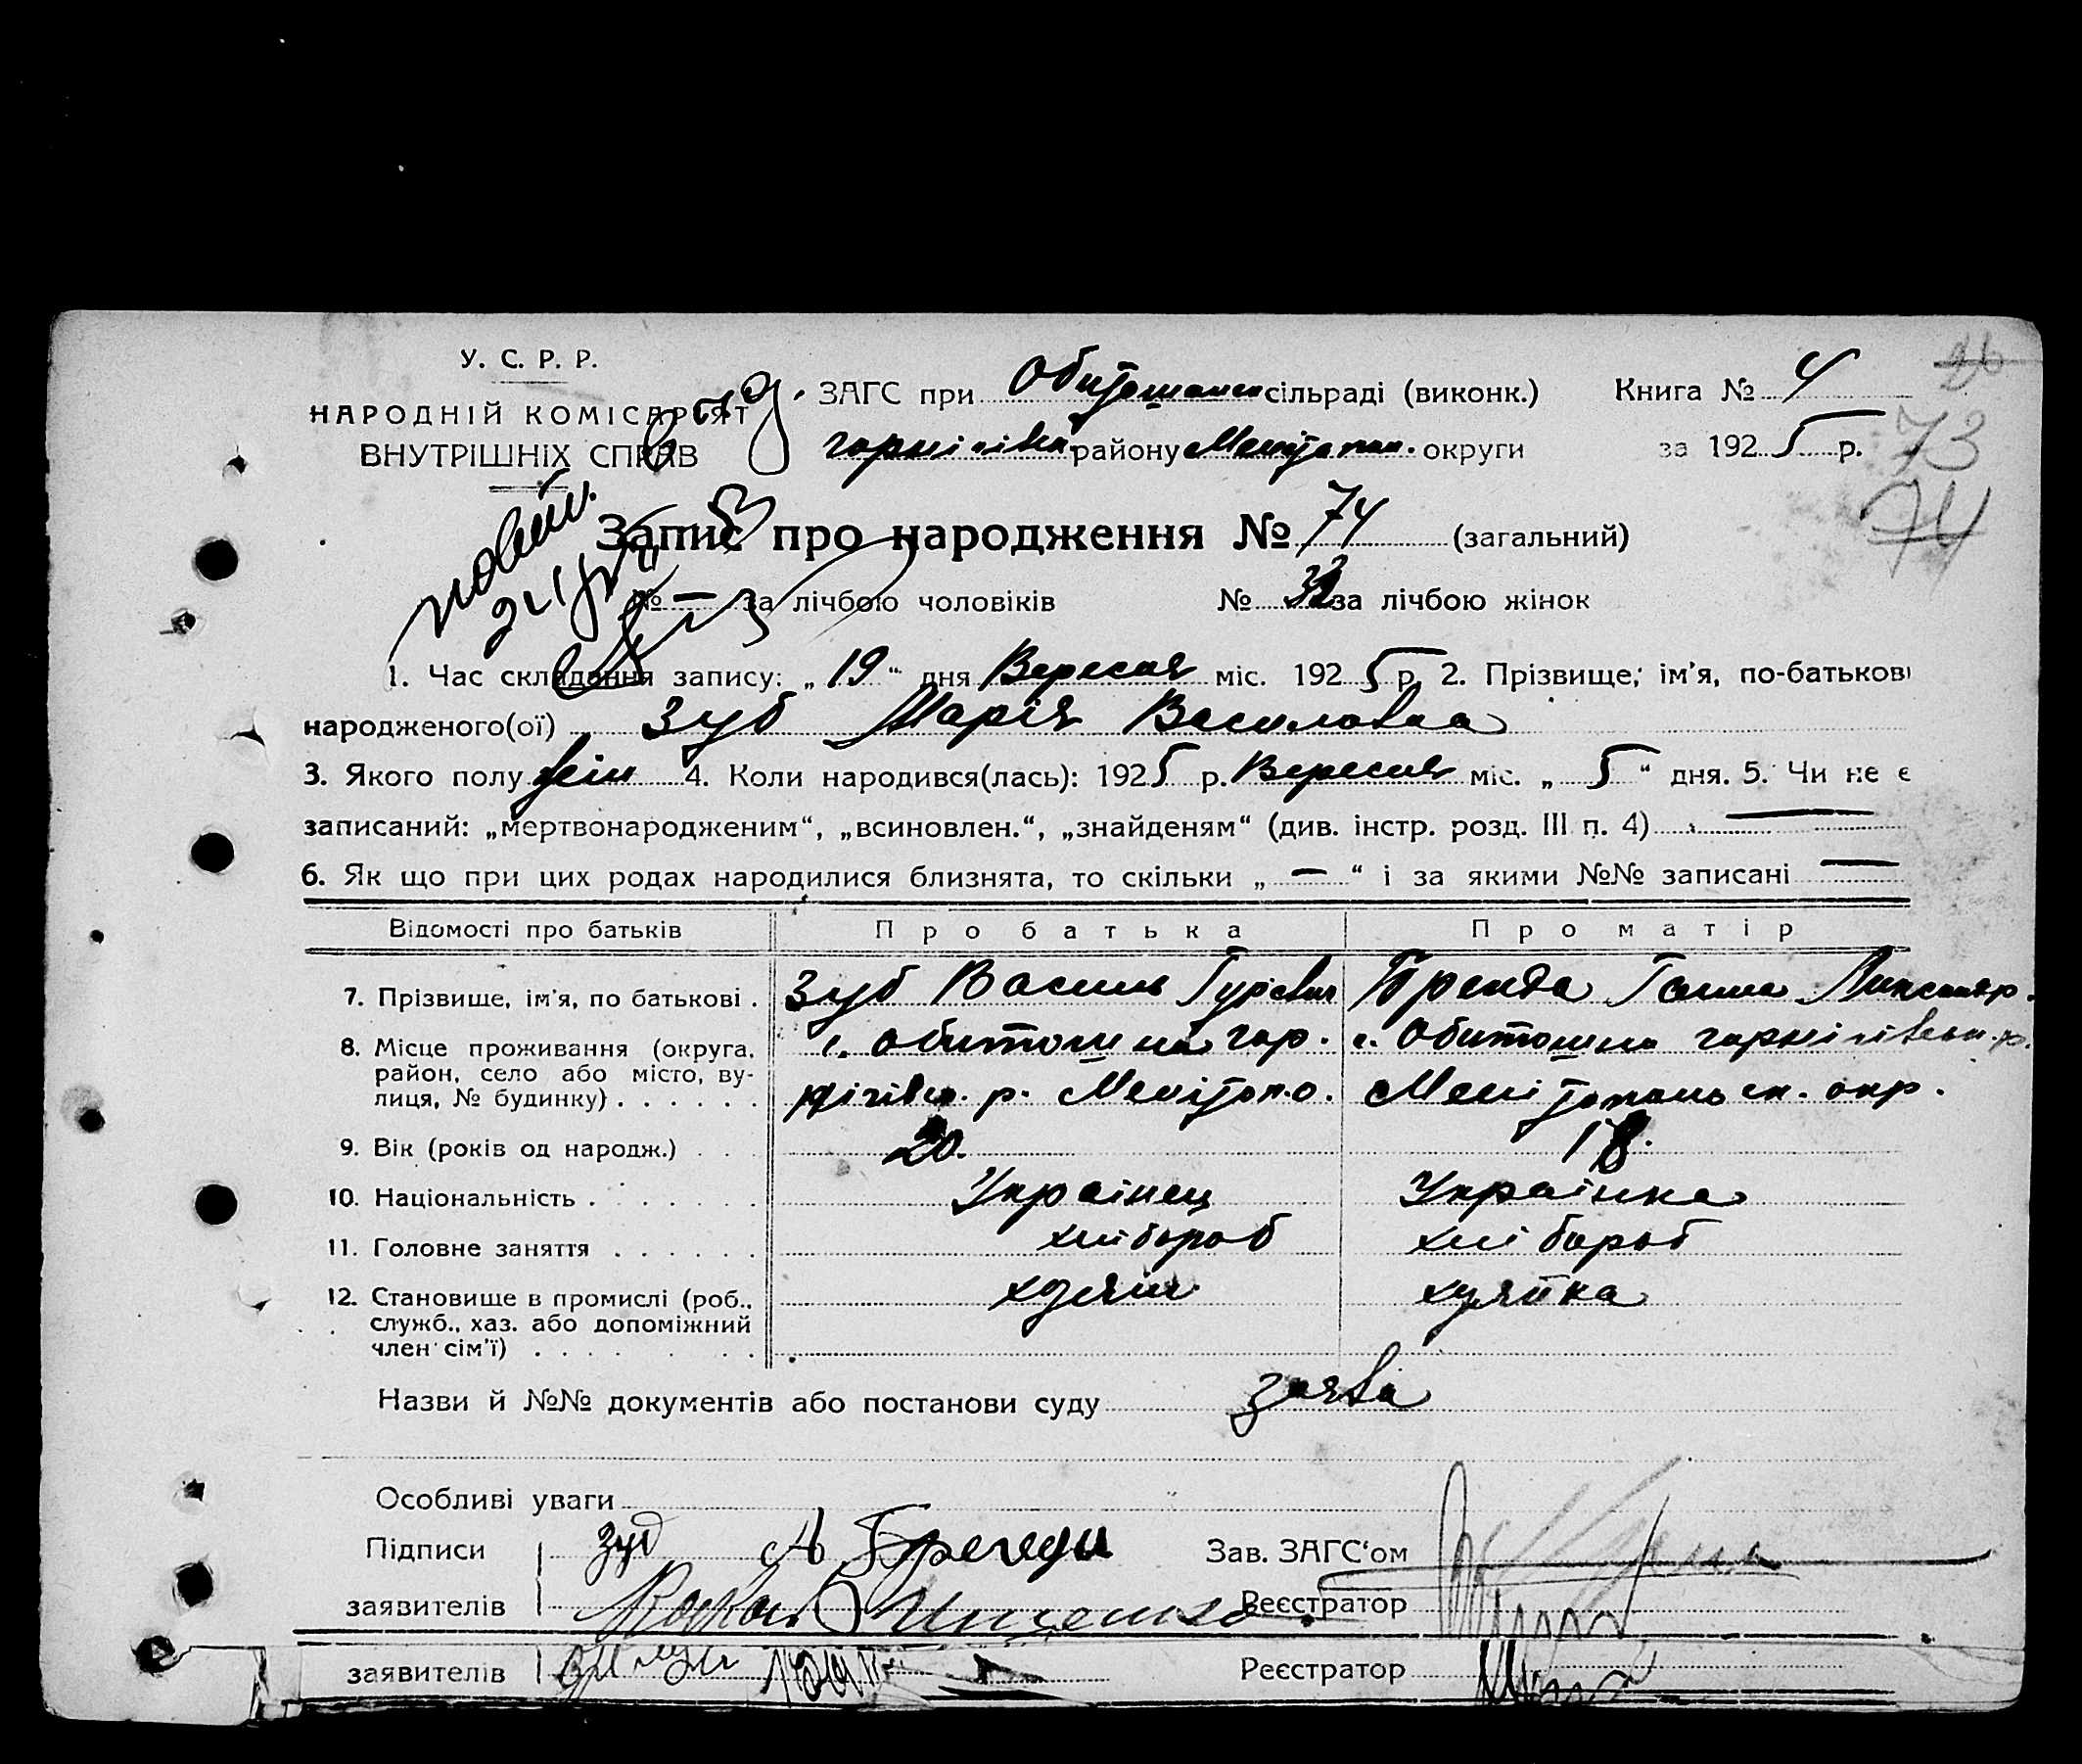 У. С. Р. Р.
НАРОДНІЙ КОМІСАРІЯТ
ВНУТРІШНІХ СПРАВ
ЗАГС при сільраді (виконк.) Книга № 4
району Мелітопол. округи за 1925 р.
26
73
74
Запис про народження № 74 (загальний)
№ — за лічбою чоловіків № за лічбою жінок
1. Час складання запису: „ 19 “ дня Вересня міс. 1925 р. 2. Прізвище, ім’я, по-батькові
народженого(ої) Зуб Марія Василовна
3. Якого полу жін 4. Коли народився(лась): 1925 р. Вересня міс. „ 5 “ дня. 5. Чи не є
записаний: „мертвонародженим“, „всиновлен.“, „знайденям“ (див. інстр. розд. III п. 4) —
6. Як що при цих родах народилися близнята, то скільки „ — “ і за якими №№ записані —
Відомості про батьків Про батька Про матір
7. Прізвище, ім’я, по батькові . Зуб Василь Гурієвич Ганна
8. Місце проживання (округа, район, село або місто, вулиця, № будинку) . . . . . . с. Обиточна р. Мелітоп. о. с. Обиточна р. Мелітопольск. окр.
9. Вік (років од народж.) . . . 20. 18.
10. Національність . . . . . . Українец Українка
11. Головне заняття . . . . . . хлібороб хлібороб
12. Становище в промислі (роб., служб., хаз. або допоміжний член сім’ї) . . . . . .
Назви й №№ документів або постанови суду заява
Особливі уваги
Підписи Зуб А Зав. ЗАГС‘ом
заявителів Реєстратор
заявителів Реєстратор